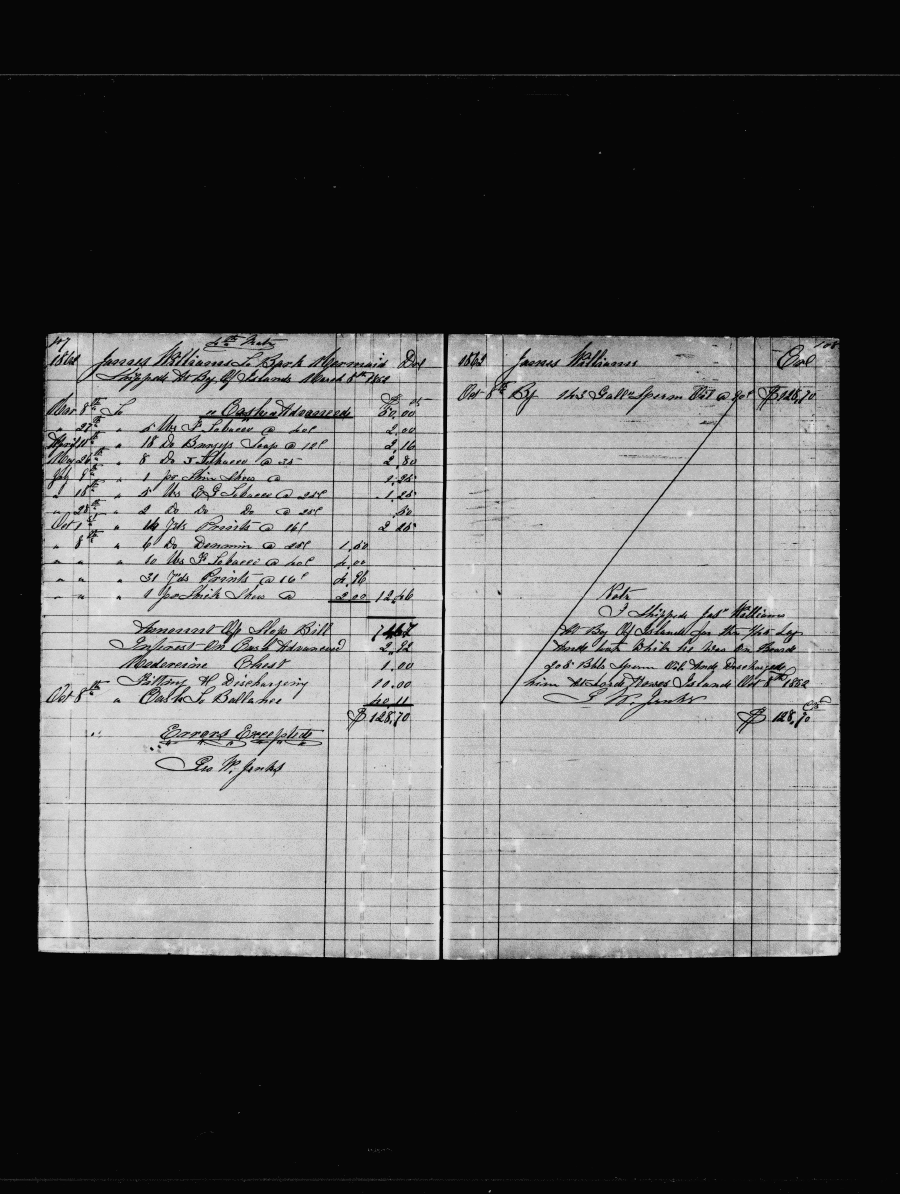 107
4th Mate
1862 James Williams To Bark Mermaid Dr
Shipped At By Of Islands March 8th 1862
$ cts
Mar 8th To " Cash Advanced 50.00
" 27th " 5 lbs F Tobacco @ 40c 2.00
April 11th " 18 Do Soap @ 12c 2.16
May 26th " 8 Do Tobacco @ 35 2.80
July 8th " 1 pr Shoes @ 2.25
" 18th " 5 lbs E G Tobacco @ 25c 1.25
" 28th " 2 Do Do Do @ 25c .50
Oct 1st " 14 Yds Prints @ 16c 2 25
" 8th " 6 Do Denmin @ 25c 1.50
" " " 10 lbs F Tobacco @ 40c 4.00
" " " 31 Yds Prints @ 16c 4.96
" " " 1 pr Thick Shoes @ 2.00 12.46
Amount Of Slop Bill
Interest On Cash Advanced 2.92
Medecine Chest 1.00
& Discharging 10.00
Oct 8th " Cash To Ballance 40 11
$ 128.70
Errors Excepted
Geo W. Jenks
108
1862 James Williams Cr
Oct 8th By 143 Galls Sperm Oil @ 90c $128.70
Note
I Shipped Jas Williams
At By Of Islands for the Lay
And While he Was On Board
Bbls Sperm Oil And Discharged
him At Lord Howes Islands Oct 8th 1862
G W. Jenks
$ 128.70